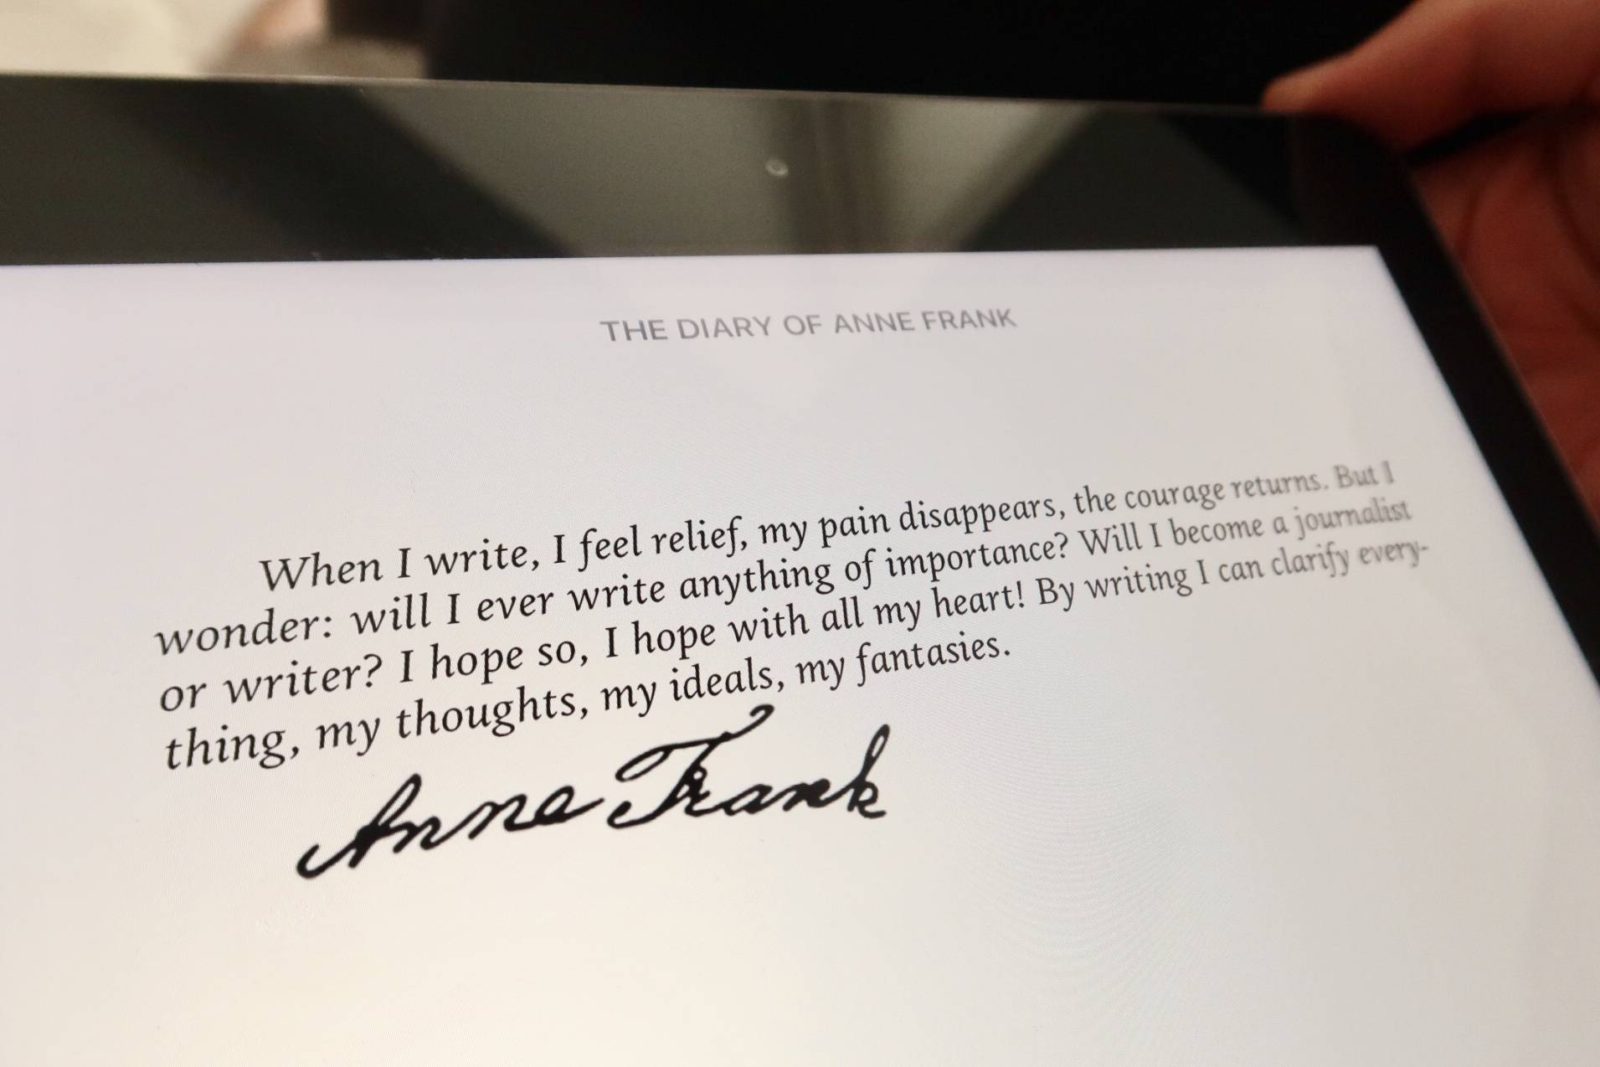 THE DIARY OF ANNE FRANK
When I write, I feel relief, my pain disappears, the courage returns. But I
wonder: will I ever write anything of importance? Will I become a journalist
or writer? I hope so, I hope with all my heart! By writing I can clarify every-
thing, my thoughts, my ideals, my fantasies.
Anne Frank